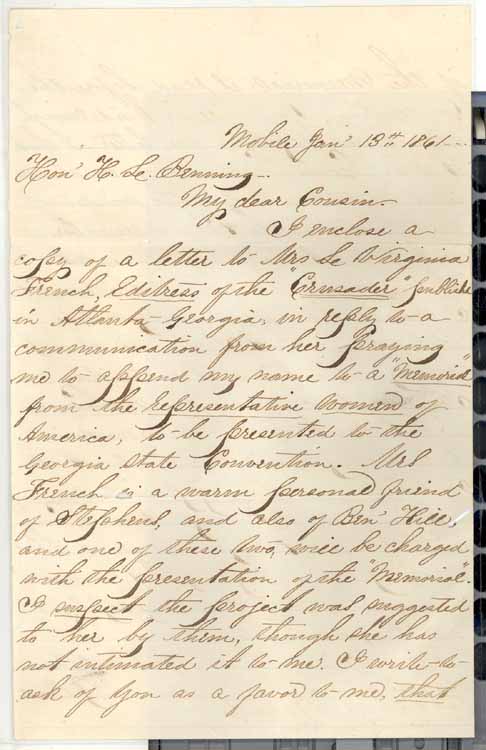 Mobile Jan' 13th 1861
Hon' H. L. Benning
My dear Cousin
I enclose a
copy of a letter to Mrs L. Virginia
French, Editress of the "Crusader" publish
in Atlanta Georgia, in reply to a
communication from her praying
me to append my name to a "Memorial
from the representative women of
America, to be presented to the
Georgia State Convention. Mrs
French is a warm personal friend
of Stephens, and also of Ben' Hill,
and one of these two, will be charged
with the presentation of the "Memorial".
I suspect the project was suggested
to her by them, though she has
not intimated it to me. I write to
ask of you as a favor to me, that